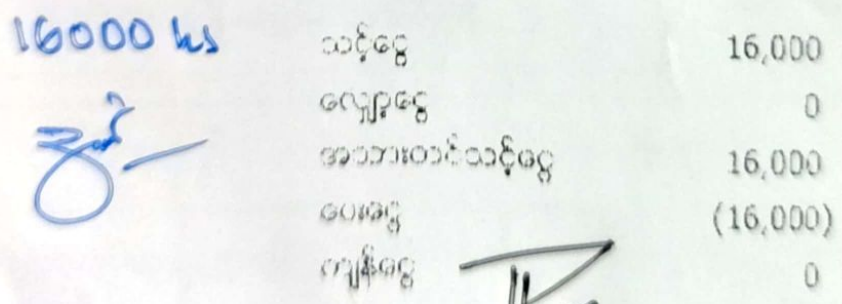 16000 ks သင့်ငွေ 16,000
လျှော့ငွေ 0
အသားတင်သင့်ငွေ 16,000
ပေးငွေ (16,000)
ကျန်ငွေ 0